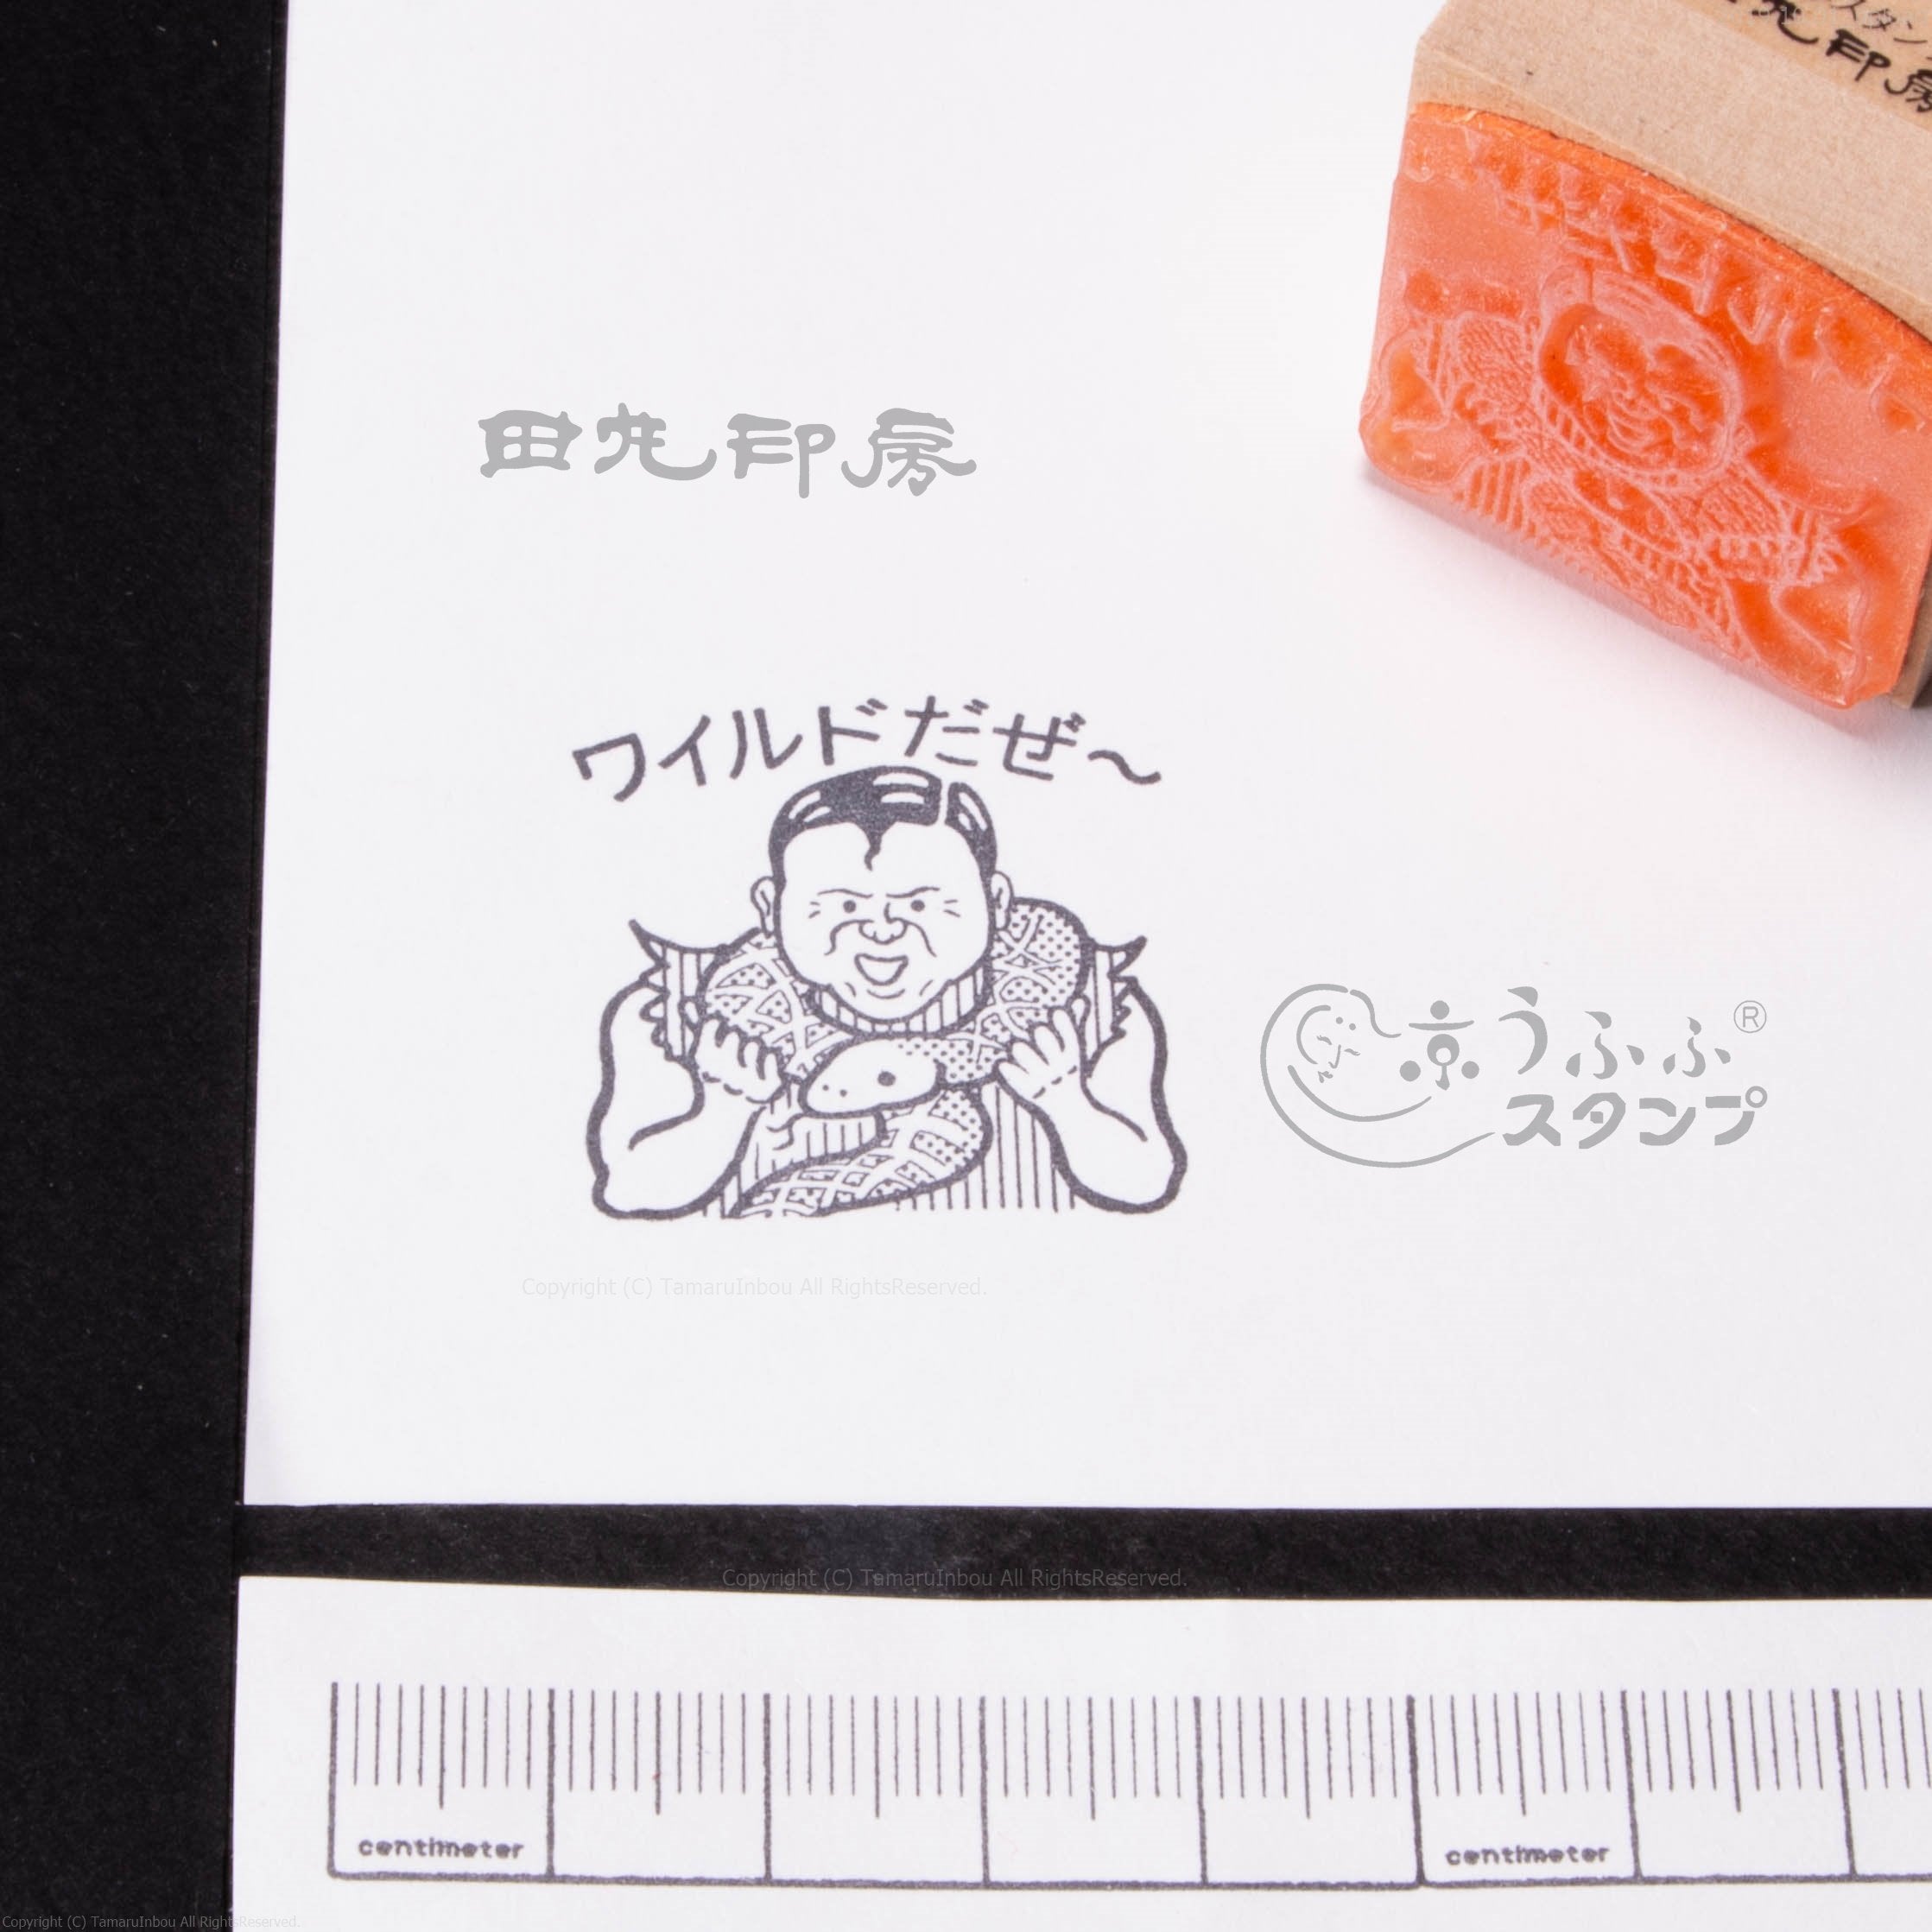 スタン
印房
田丸印房
ワイルドだぜ〜
京うふふ®
スタンプ
Copyright (C) TamaruInbou All RightsReserved.
Copyright (C) TamaruInbou All RightsReserved.
centimeter
centimeter
Copyright (C) TamaruInbou All RightsReserved.